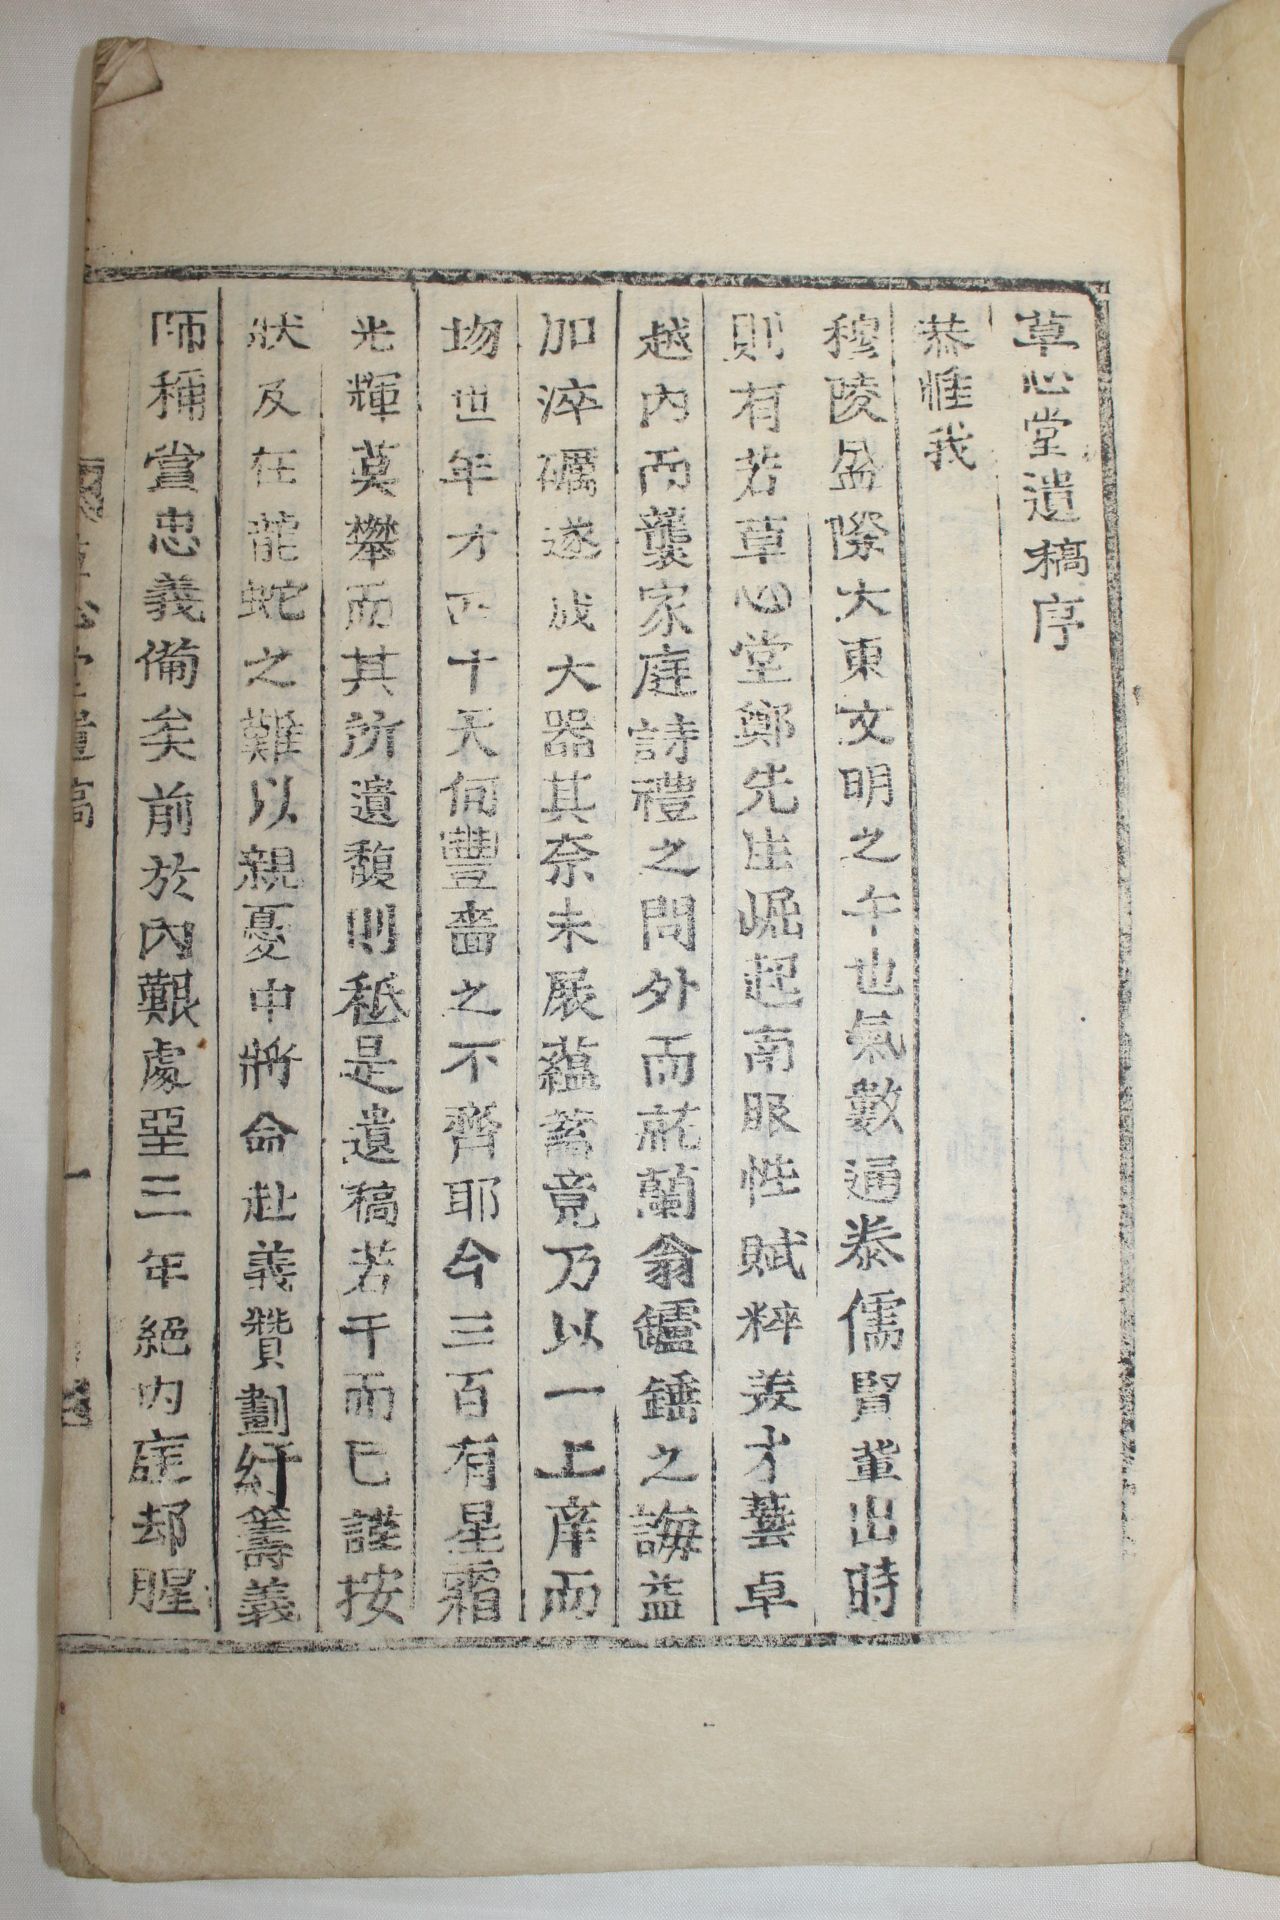 草心堂遺稿序
恭惟我
穆陵盛際大東文明之午也氣數通泰儒賢輩出時
則有若草心堂鄭先生崛起南服性賦粹美才藝卓
越內而襲家庭詩禮之聞外而蓺蘭翁鑪錘之誨益
加淬礪遂成大器其奈未展蘊蓄竟乃以一上庠而
歾世年才四十天何豐嗇之不齊耶今三百有星霜
光輝莫攀而其所遺馥則秪是遺稿若干而已謹按
狀及在龍蛇之難以親憂中將命赴義贊劃紆籌義
師稱賞忠義備矣前於內艱處堊三年絕內庭却腥
草心堂遺稿
一